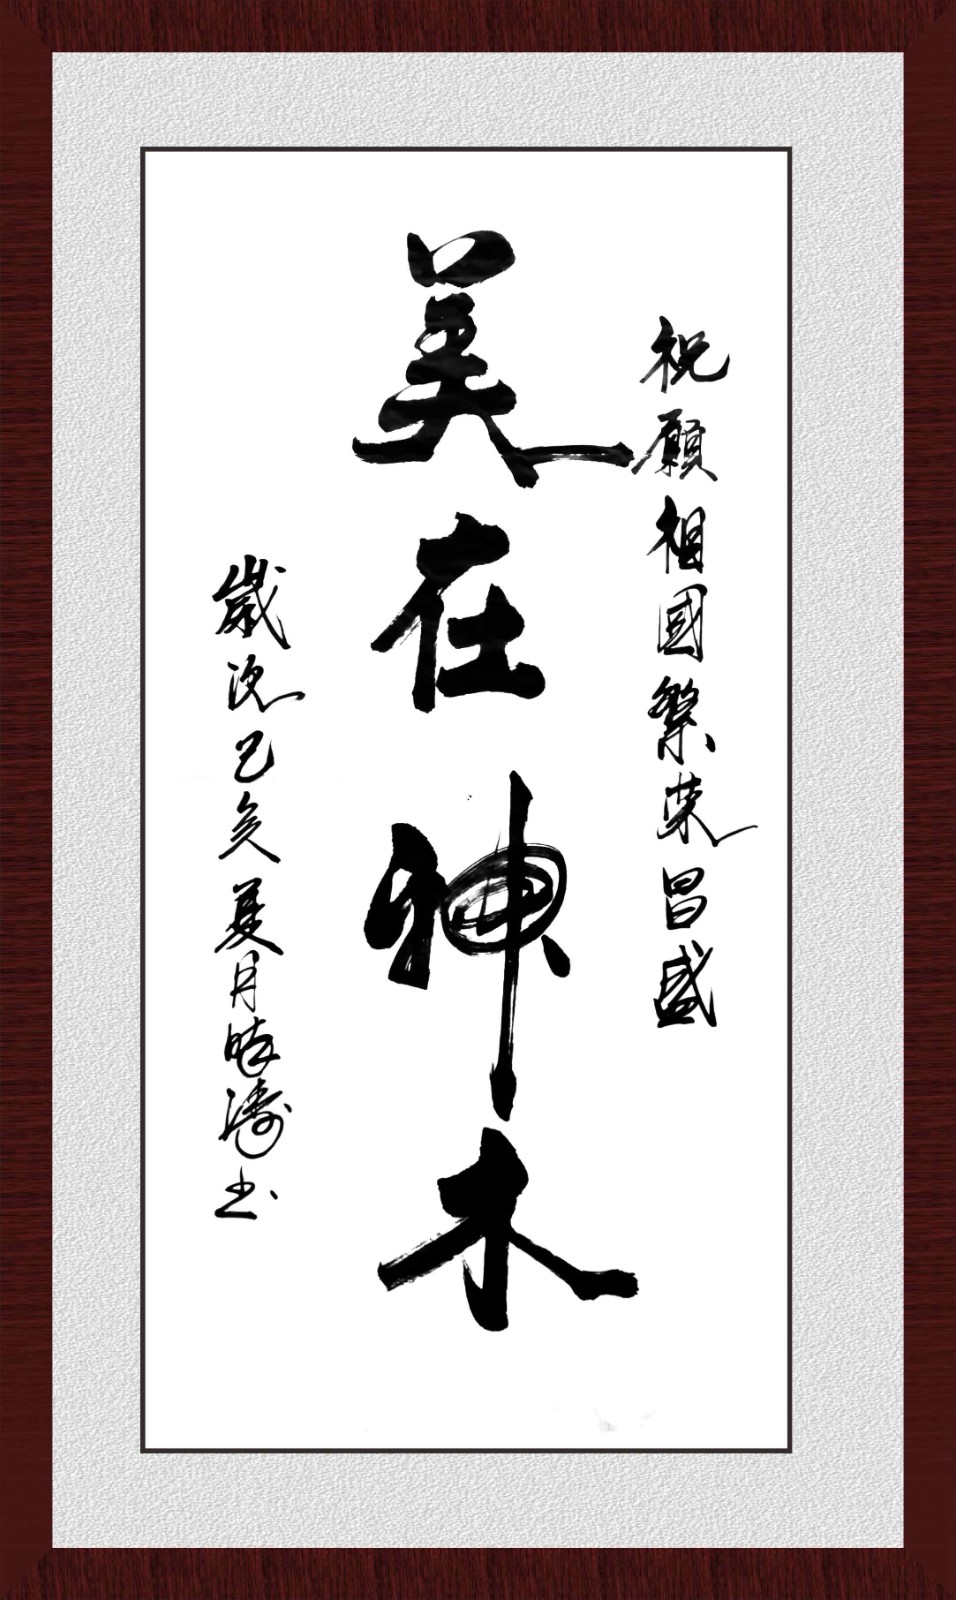 祝願祖國繁荣昌盛
美在神木
歲次己亥夏月濤书